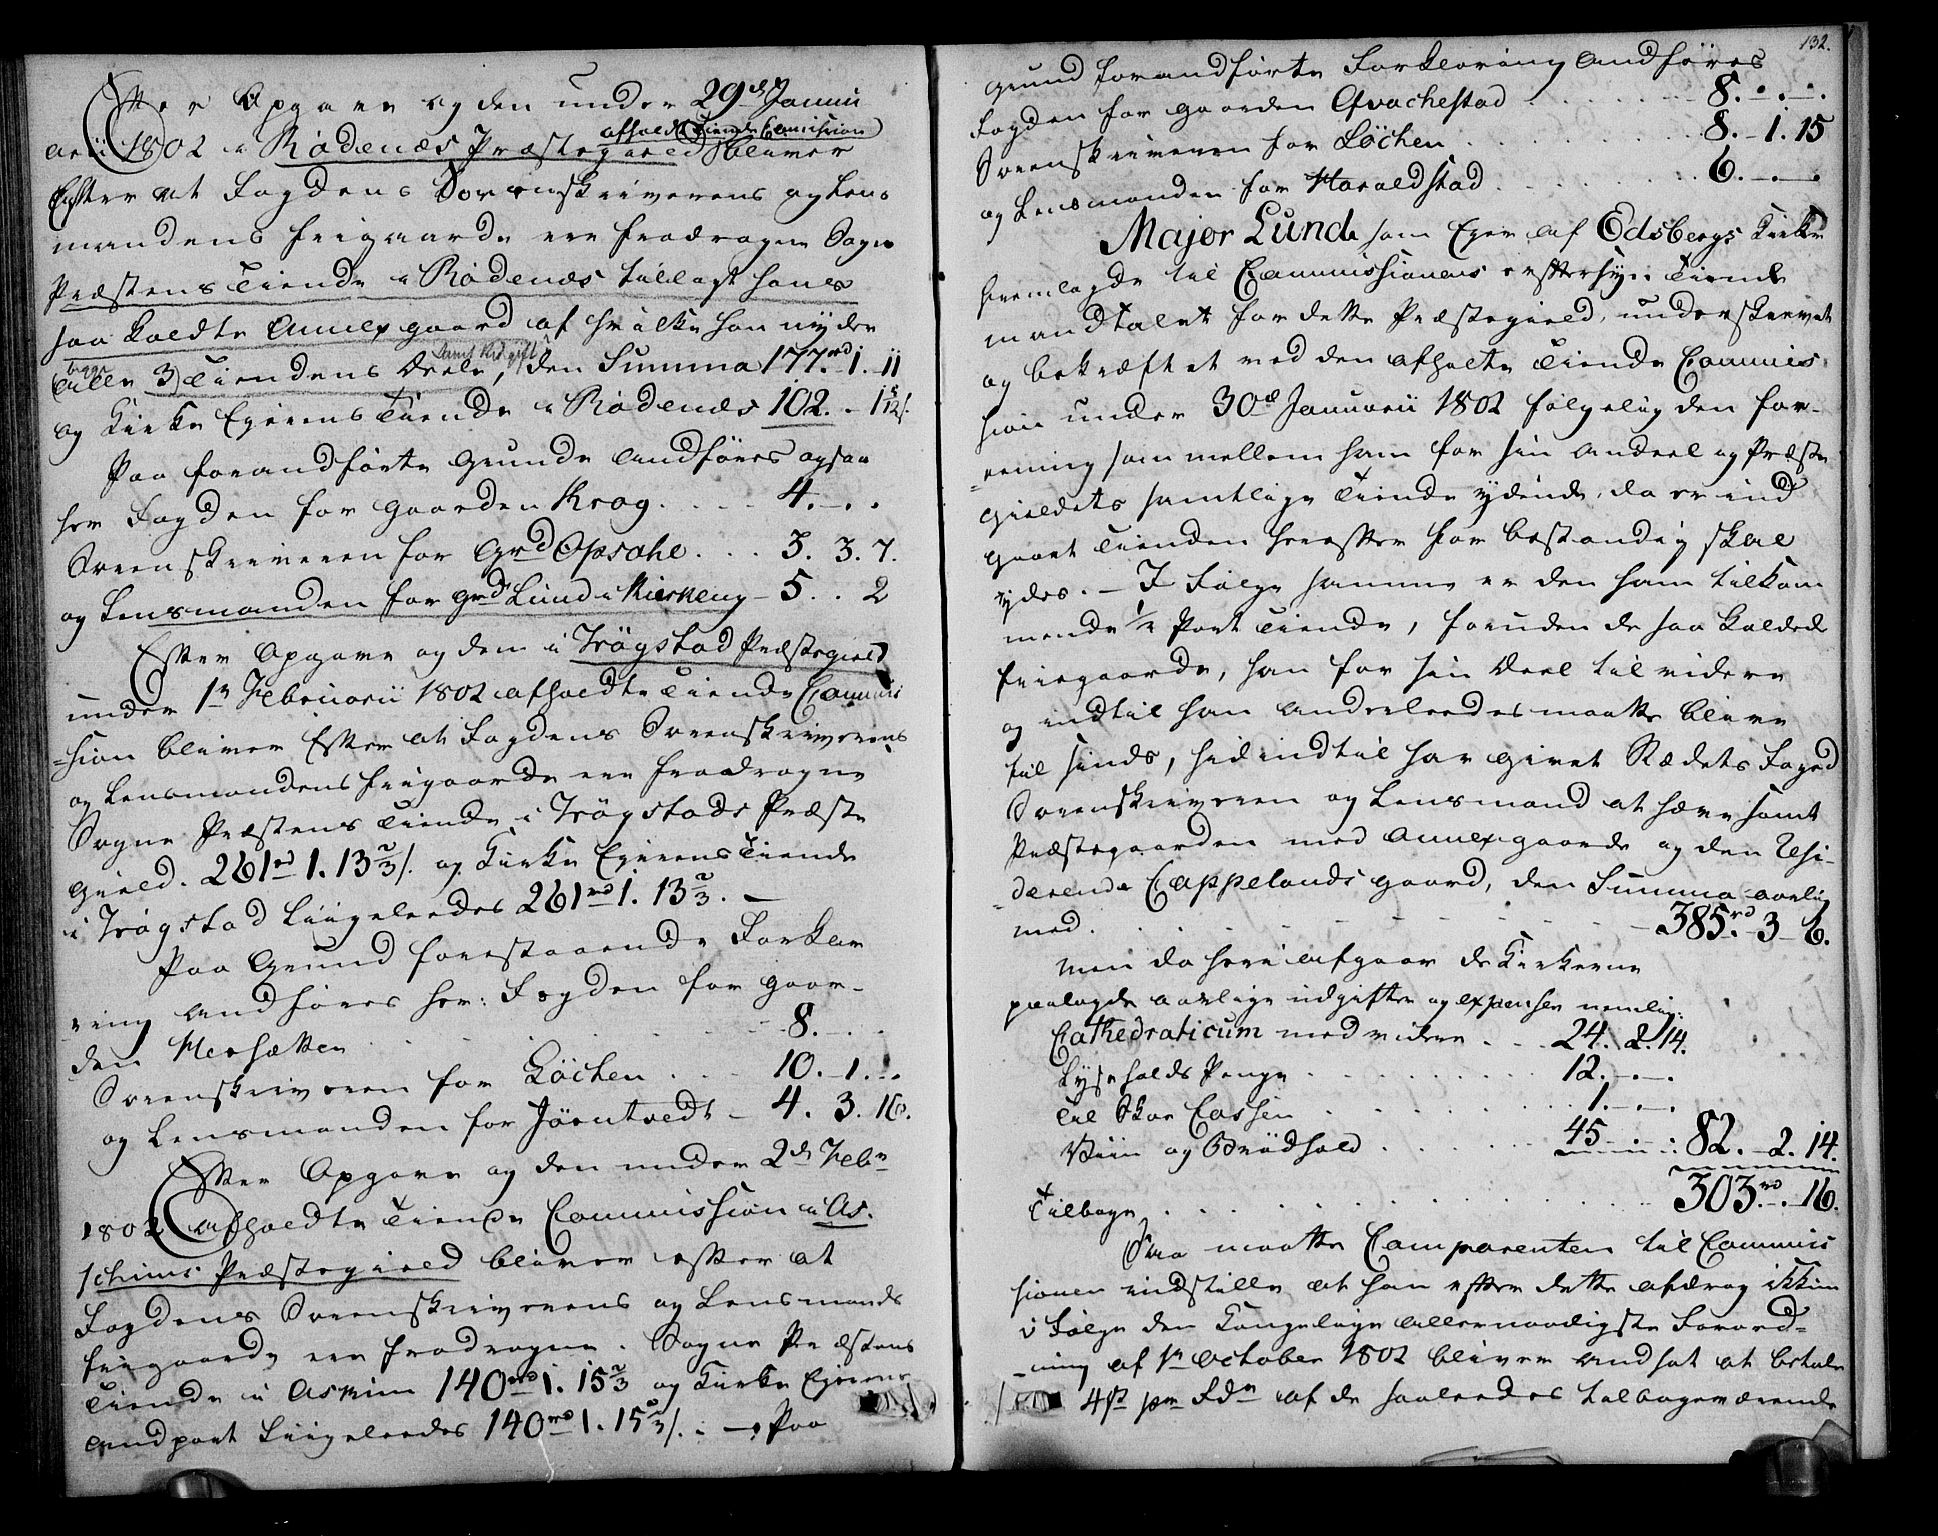 Efter Opgave og den under 29de Janu
arii 1802 i Rødenæs Præstegield afholdte Tiende Comission bliver
Efter at Fogdens Sorenskriverens og Lens
mandens friegaarde ere fradragne Sogne
Præstens Tiende i Rødenæs tillagt hans
saa kaldte Annex gaard af hvilke han nyder
alle 3 Tiendens Deele, den Summa 177rd 1. 11
og Kirke Ejerens Tiende i Rødenæs 102. -
Paa foranførte Grunde andføres ogsaa
her Fogden for Gaarden Krog . . . 4. - . .
Sorenskriveren for Grd Opsahl . . . 3. 3. 7.
og Lensmanden for grd Lund i Kirkeng - 5. . 2
Efter Opgave og den i Trögstad Præstegield
under 1te Februarii 1802 afholdte Tiende Commis
=sion bliver Efter at Fogdens Sorenskriverens
og Lensmandens friegaarde ere fradragne
Sogne Præstens Tiende i Trögstads Præste
gield. 261rd 1. 13 2/3 s. og Kirke Ejerens Tiende
i Trögstad Liigeleedes 261rd 1. 13 2/3. -
Paa Grund forestaaende Forkla
ring andføres her: Fogden for gaar-
den Hersætter . . . 8. - . .
Sorenskriveren for Löchen . . . 10. - 1. - .
og Lensmanden for Jörntvedt - 4. 3. 16.
Efter Opgave og den under 2de Febr
1802 afholdte Tiende Commission i As-
schims Præstegield bliver efter at
Fogdens Sorenskriverens og Lensmands
friegaarde ere fradragne. Sogne Præstens
Tiende i Askim 140rd 1. 15 2/3 og Kirke Ejerens
andpart Liigeleedes 140rd 1. 15 2/3 s. - Paa
132.
Grund foranførte Forklaring andføres
Fogden for gaarden Qvachestad . . . 8. - . - .
Sorenskriveren for Löchen . . . 8. - 1. 15
og Lensmanden for Haraldstad . . . 6. - . - .
Major Lund som Ejer af Edsbergs Kirke
fremlagde til Commissionens eftersyn Tiende
mandtalet for dette Præstegield, underskrevet
og bekræftet ved den afholte Tiende Commis
sion under 30te Januarii 1802 følgelig den for-
=rening som mellem ham for sin Andeel og Præste
Gieldets samtlige Tiende ydende, da er ind
gaaet Tienden herefter for bestandig skal
ydes. - I Følge samme er den ham tilkom
mende 1/2 Part Tiende, foruden de saa kaldede
friegaarde, han for sin Deel til videre
og indtil han anderleedes maatte blive
til sinds, hid indtil har givet Rædets Foged
Sorenskriveren og Lensmand at hæve samt
Præstegaarden med Annexgaarde og den Resi-
=derende Cappelands gaard, den Summa aarlig
med . . . 385.rd - 3 - 6.
Men da heri afgaar de Kirkerne
paalagde aarlige udgifter og expenser nemlig:
Cathedraticum med videre . . . 24. 2. 14.
Lyseholds Penge . . . 12. - . - .
til Skol Cassen . . . 1. - . - .
Viin og Brödhold . . . 45 - . - : 82. - 2. 14.
Tilbage . . . 303.rd - . - 16.
Saa maatte Comparenten til Commis
sionen indstille at han efter dette afdrag ikkun
i Følge den Kongelige Allernaadigste Forord=
=ning af 1te October 1802 bliver andsat at betale
4 s pr Rdr af de saaleedes tilbageværende